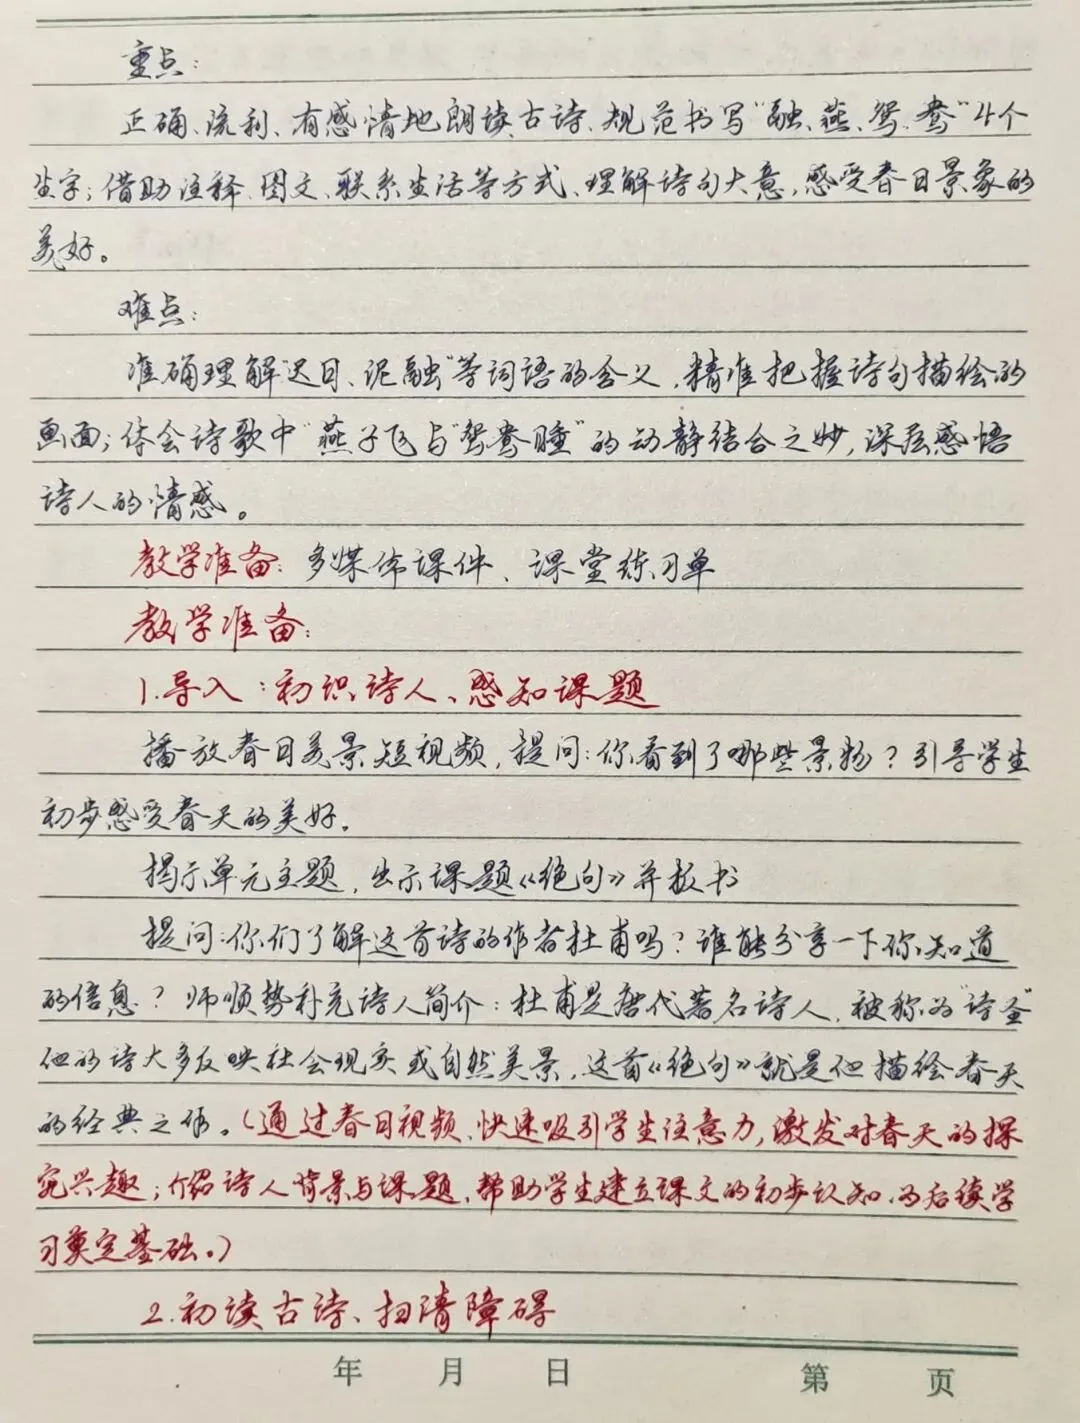 重点：
正确、流利、有感情地朗读古诗、规范书写“融、燕、鸳、鸯”4个
生字；借助注释、图文、联系生活等方式、理解诗句大意，感受春日景象的
美好。
难点：
准确理解迟日、泥融”等词语的含义，精准把握诗句描绘的
画面；体会诗歌中“燕子飞与“鸳鸯睡”的动静结合之妙，深层感悟
诗人的情感。
教学准备：多媒体课件、课堂练习单
教学准备：
1.导入：初识诗人、感知课题
播放春日美景短视频，提问：你看到了哪些景物？引导学生
初步感受春天的美好。
揭示单元主题，出示课题《绝句》并板书
提问：你们了解这首诗的作者杜甫吗？谁能分享一下你知道
的信息？师顺势补充诗人简介：杜甫是唐代著名诗人，被称为“诗圣”
他的诗大多反映社会现实或自然美景，这首《绝句》就是他描绘春天
的经典之作。（通过春日视频、快速吸引学生注意力，激发对春天的探
究兴趣；介绍诗人背景与课题，帮助学生建立课文的初步认知，为后续学
习奠定基础。）
2.初读古诗、扫清障碍
年 月 日 第 页